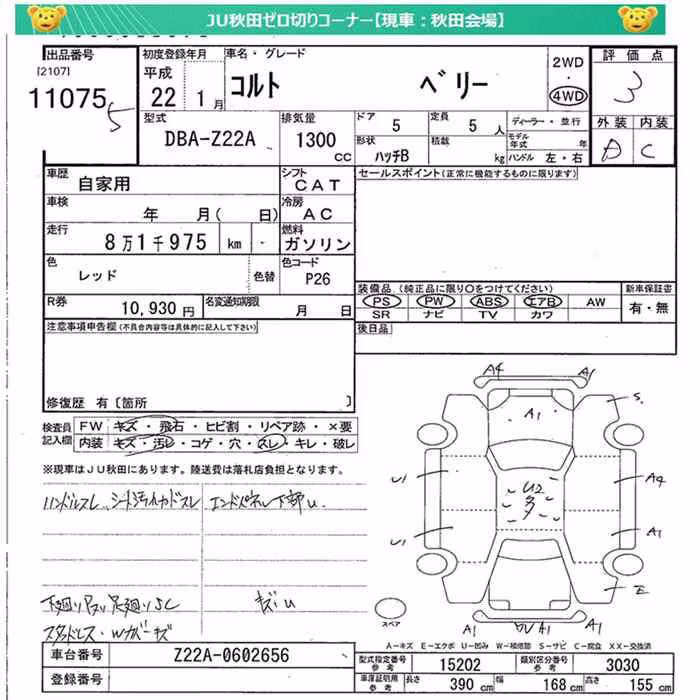 JU秋田ゼロ切りコーナー【現車:秋田会場】
出品番号
[2107]
11075
5
初度登録年月
平成
22 1月
車名・グレード
コルト ベリー
2WD
・
4WD
評価点
3
外装 内装
D C
型式
DBA-Z22A
排気量
1300
CC
ドア
5
定員
5人
形状
ハッチB
積載
kg
ディーラー・並行
モデル年式 年
ハンドル 左・右
車歴
自家用
シフト
CAT
セールスポイント(正常に機能するものに限ります)
車検
年 月( 日)
冷房
AC
走行
8万1千975 km -
燃料
ガソリン
色
レッド
色替
色コード
P26
装備品(純正品に限り○をつけてください)
PS PW ABS エアB AW
SR ナビ TV カワ
新車保証書
有・無
R券
10,930円
名変通知期限
月 日
後日品
注意事項申告欄(不具合内容等は具体的に記入して下さい)
修復歴 有〔箇所 〕
検査員記入欄
FW キズ・飛石・ヒビ割・リペア跡・×要
内装 キズ・汚レ・コゲ・穴・スレ・キレ・破レ
※現車はJU秋田にあります。陸送費は落札店負担となります。
ハンドルスレ
エンドパネル下部U
キズU
スタッドレス・Wカバーキズ
A4 A1
A1
S
U1
U2
A4
U1
A1
E
A1 A1 A1
スペア
A－キズ E－エクボ U－凹み W－補修跡 S－サビ C－腐食 XX－交換済
車台番号
Z22A-0602656
登録番号
型式指定番号
参考
15202
類別区分番号
参考
3030
車庫証明用
参考
長さ 390cm
幅 168cm
高さ 155cm